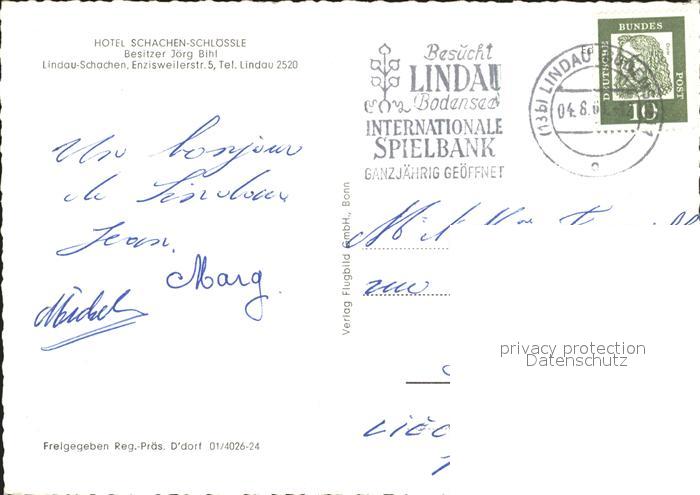 HOTEL SCHACHEN-SCHLÖSSLE
Besitzer Jörg Bihl
Lindau-Schachen, Enzisweilerstr. 5, Tel. Lindau 2520
Besucht
LINDAU
Bodensee
INTERNATIONALE
SPIELBANK
GANZJÄHRIG GEÖFFNET
(13b) LINDAU
04.8.6
DEUTSCHE BUNDES POST
10
Un bonjour
de Lindau
Jean.
Marg.
Michel
Verlag Flugbild GmbH., Bonn
rue
privacy protection
Datenschutz
Freigegeben Reg.-Präs. D'dorf 01/4026-24